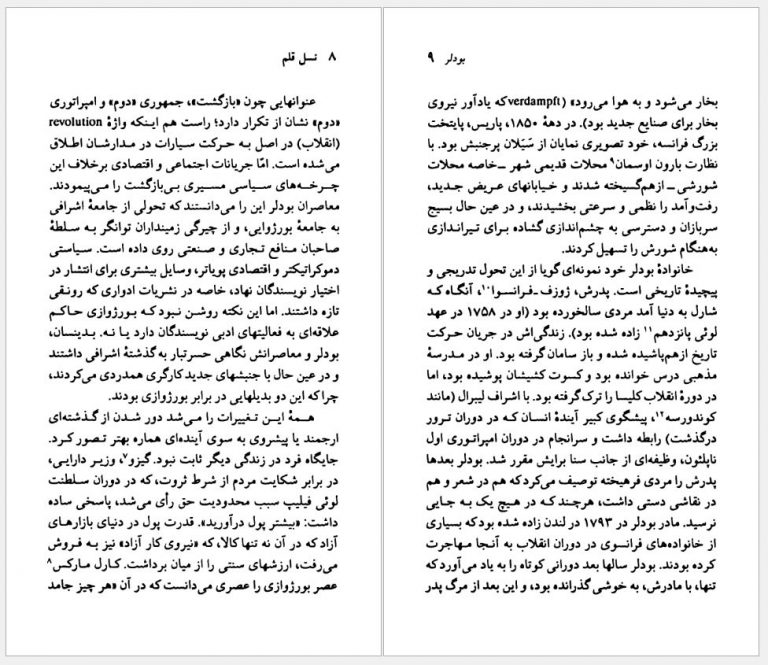 ۸ نسل قلم
عنوانهایی چون «بازگشت»، جمهوری «دوم» و امپراتوری
«دوم» نشان از تکرار دارد؛ راست هم اینکه واژهٔ revolution
(انقلاب) در اصل به حرکت سیارات در مدارشان اطلاق
می‌شده است. امّا جریانات اجتماعی و اقتصادی برخلاف این
چرخه‌های سیاسی مسیری بی‌بازگشت را می‌پیمودند.
معاصران بودلر این را می‌دانستند که تحولی از جامعهٔ اشرافی
به جامعهٔ بورژوایی، و از چیرگی زمینداران توانگر به سلطهٔ
صاحبان منافع تجاری و صنعتی روی داده است. سیاستی
دموکراتیکتر و اقتصادی پویاتر، وسایل بیشتری برای انتشار در
اختیار نویسندگان نهاد، خاصه در نشریات ادواری که رونقی
تازه داشتند. اما این نکته روشن نبود که بورژوازی حاکم
علاقه‌ای به فعالیتهای ادبی نویسندگان دارد یا نه. بدینسان،
بودلر و معاصرانش نگاهی حسرتبار به گذشتهٔ اشرافی داشتند
و در عین حال با جنبشهای جدید کارگری همدردی می‌کردند،
چرا که این دو بدیلهایی در برابر بورژوازی بودند.
همهٔ این تغییرات را می‌شد دور شدن از گذشته‌ای
ارجمند یا پیشروی به سوی آینده‌ای هماره بهتر تصور کرد.
جایگاه فرد در زندگی دیگر ثابت نبود. گیزو۷، وزیر دارایی،
در برابر شکایت مردم از شرط ثروت، که در دوران سلطنت
لوئی فیلیپ سبب محدودیت حق رأی می‌شد، پاسخی ساده
داشت: «بیشتر پول درآورید». قدرت پول در دنیای بازارهای
آزاد که در آن نه تنها کالا، که «نیروی کار آزاد» نیز به فروش
می‌رفت، ارزشهای سنتی را از میان برداشت. کارل مارکس۸
عصر بورژوازی را عصری می‌دانست که در آن «هر چیز جامد
بودلر ۹
بخار می‌شود و به هوا می‌رود» (verdampft که یادآور نیروی
بخار برای صنایع جدید بود). در دههٔ ۱۸۵۰، پاریس، پایتخت
بزرگ فرانسه، خود تصویری نمایان از سَیَلان پرجنبش بود. با
نظارت بارون اوسمان۹ محلات قدیمی شهر ــ خاصه محلات
شورشی ــ ازهم‌گسیخته شدند و خیابانهای عریض جدید،
رفت‌وآمد را نظمی و سرعتی بخشیدند، و در عین حال بسیج
سربازان و دسترسی به چشم‌اندازی گشاده برای تیراندازی
به‌هنگام شورش را تسهیل کردند.
خانوادهٔ بودلر خود نمونه‌ای گویا از این تحول تدریجی و
پیچیدهٔ تاریخی است. پدرش، ژوزف ـ فرانسوا۱۰، آنگاه که
شارل به دنیا آمد مردی سالخورده بود (او در ۱۷۵۸ در عهد
لوئی پانزدهم۱۱ زاده شده بود). زندگی‌اش در جریان حرکت
تاریخ ازهم‌پاشیده شده و باز سامان گرفته بود. او در مدرسهٔ
مذهبی درس خوانده بود و کسوت کشیشان پوشیده بود، اما
در دورهٔ انقلاب کلیسا را ترک گرفته بود. با اشراف لیبرال (مانند
کوندورسه۱۲، پیشگوی کبیر آیندهٔ انسان که در دوران ترور
درگذشت) رابطه داشت و سرانجام در دوران امپراتوری اول
ناپلئون، وظیفه‌ای از جانب سنا برایش مقرر شد. بودلر بعدها
پدرش را مردی فرهیخته توصیف می‌کرد که هم در شعر و هم
در نقاشی دستی داشت، هرچند که در هیچ یک به جایی
نرسید. مادر بودلر در ۱۷۹۳ در لندن زاده شده بود که بسیاری
از خانواده‌های فرانسوی در دوران انقلاب به آنجا مهاجرت
کرده بودند. بودلر سالها بعد دورانی کوتاه را به یاد می‌آورد که
تنها، با مادرش، به خوشی گذرانده بود، و این بعد از مرگ پدر